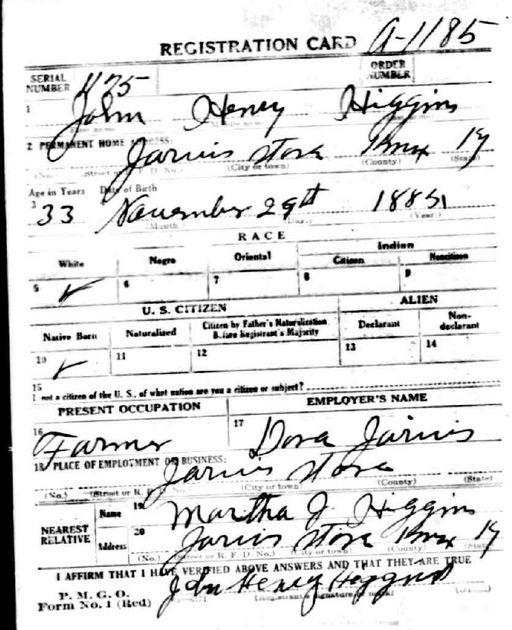 REGISTRATION CARD A-1185
SERIAL NUMBER 1175 ORDER NUMBER
1 John Henry Higgins
2 PERMANENT HOME ADDRESS:
Jarvis Store Knox Ky
(No.) (Street or R. F. D. No.) (City or town) (County) (State)
Age in Years Date of Birth
3 33 November 29th 1884
(Month) (Day.) (Year.)
RACE
White Negro Oriental Indian
Citizen Noncitizen
5 ✓ 6 7 8 9
U. S. CITIZEN ALIEN
Native Born Naturalized Citizen by Father's Naturalization Before Registrant's Majority Declarant Non-declarant
10 ✓ 11 12 13 14
15
If not a citizen of the U. S., of what nation are you a citizen or subject?
PRESENT OCCUPATION EMPLOYER'S NAME
16 Farmer 17 Dora Jarvis
18 PLACE OF EMPLOYMENT OR BUSINESS:
Jarvis Store
(No.) (Street or R. F. D. No.) (City or town) (County) (State)
NEAREST RELATIVE Name 19 Martha J Higgins
Address 20 Jarvis Store Knox Ky
(No.) (Street or R. F. D. No.) (City or town) (County) (State)
I AFFIRM THAT I HAVE VERIFIED ABOVE ANSWERS AND THAT THEY ARE TRUE
P. M. G. O.
Form No. 1 (Red) John Henry Higgins
(Registrant's signature or mark)